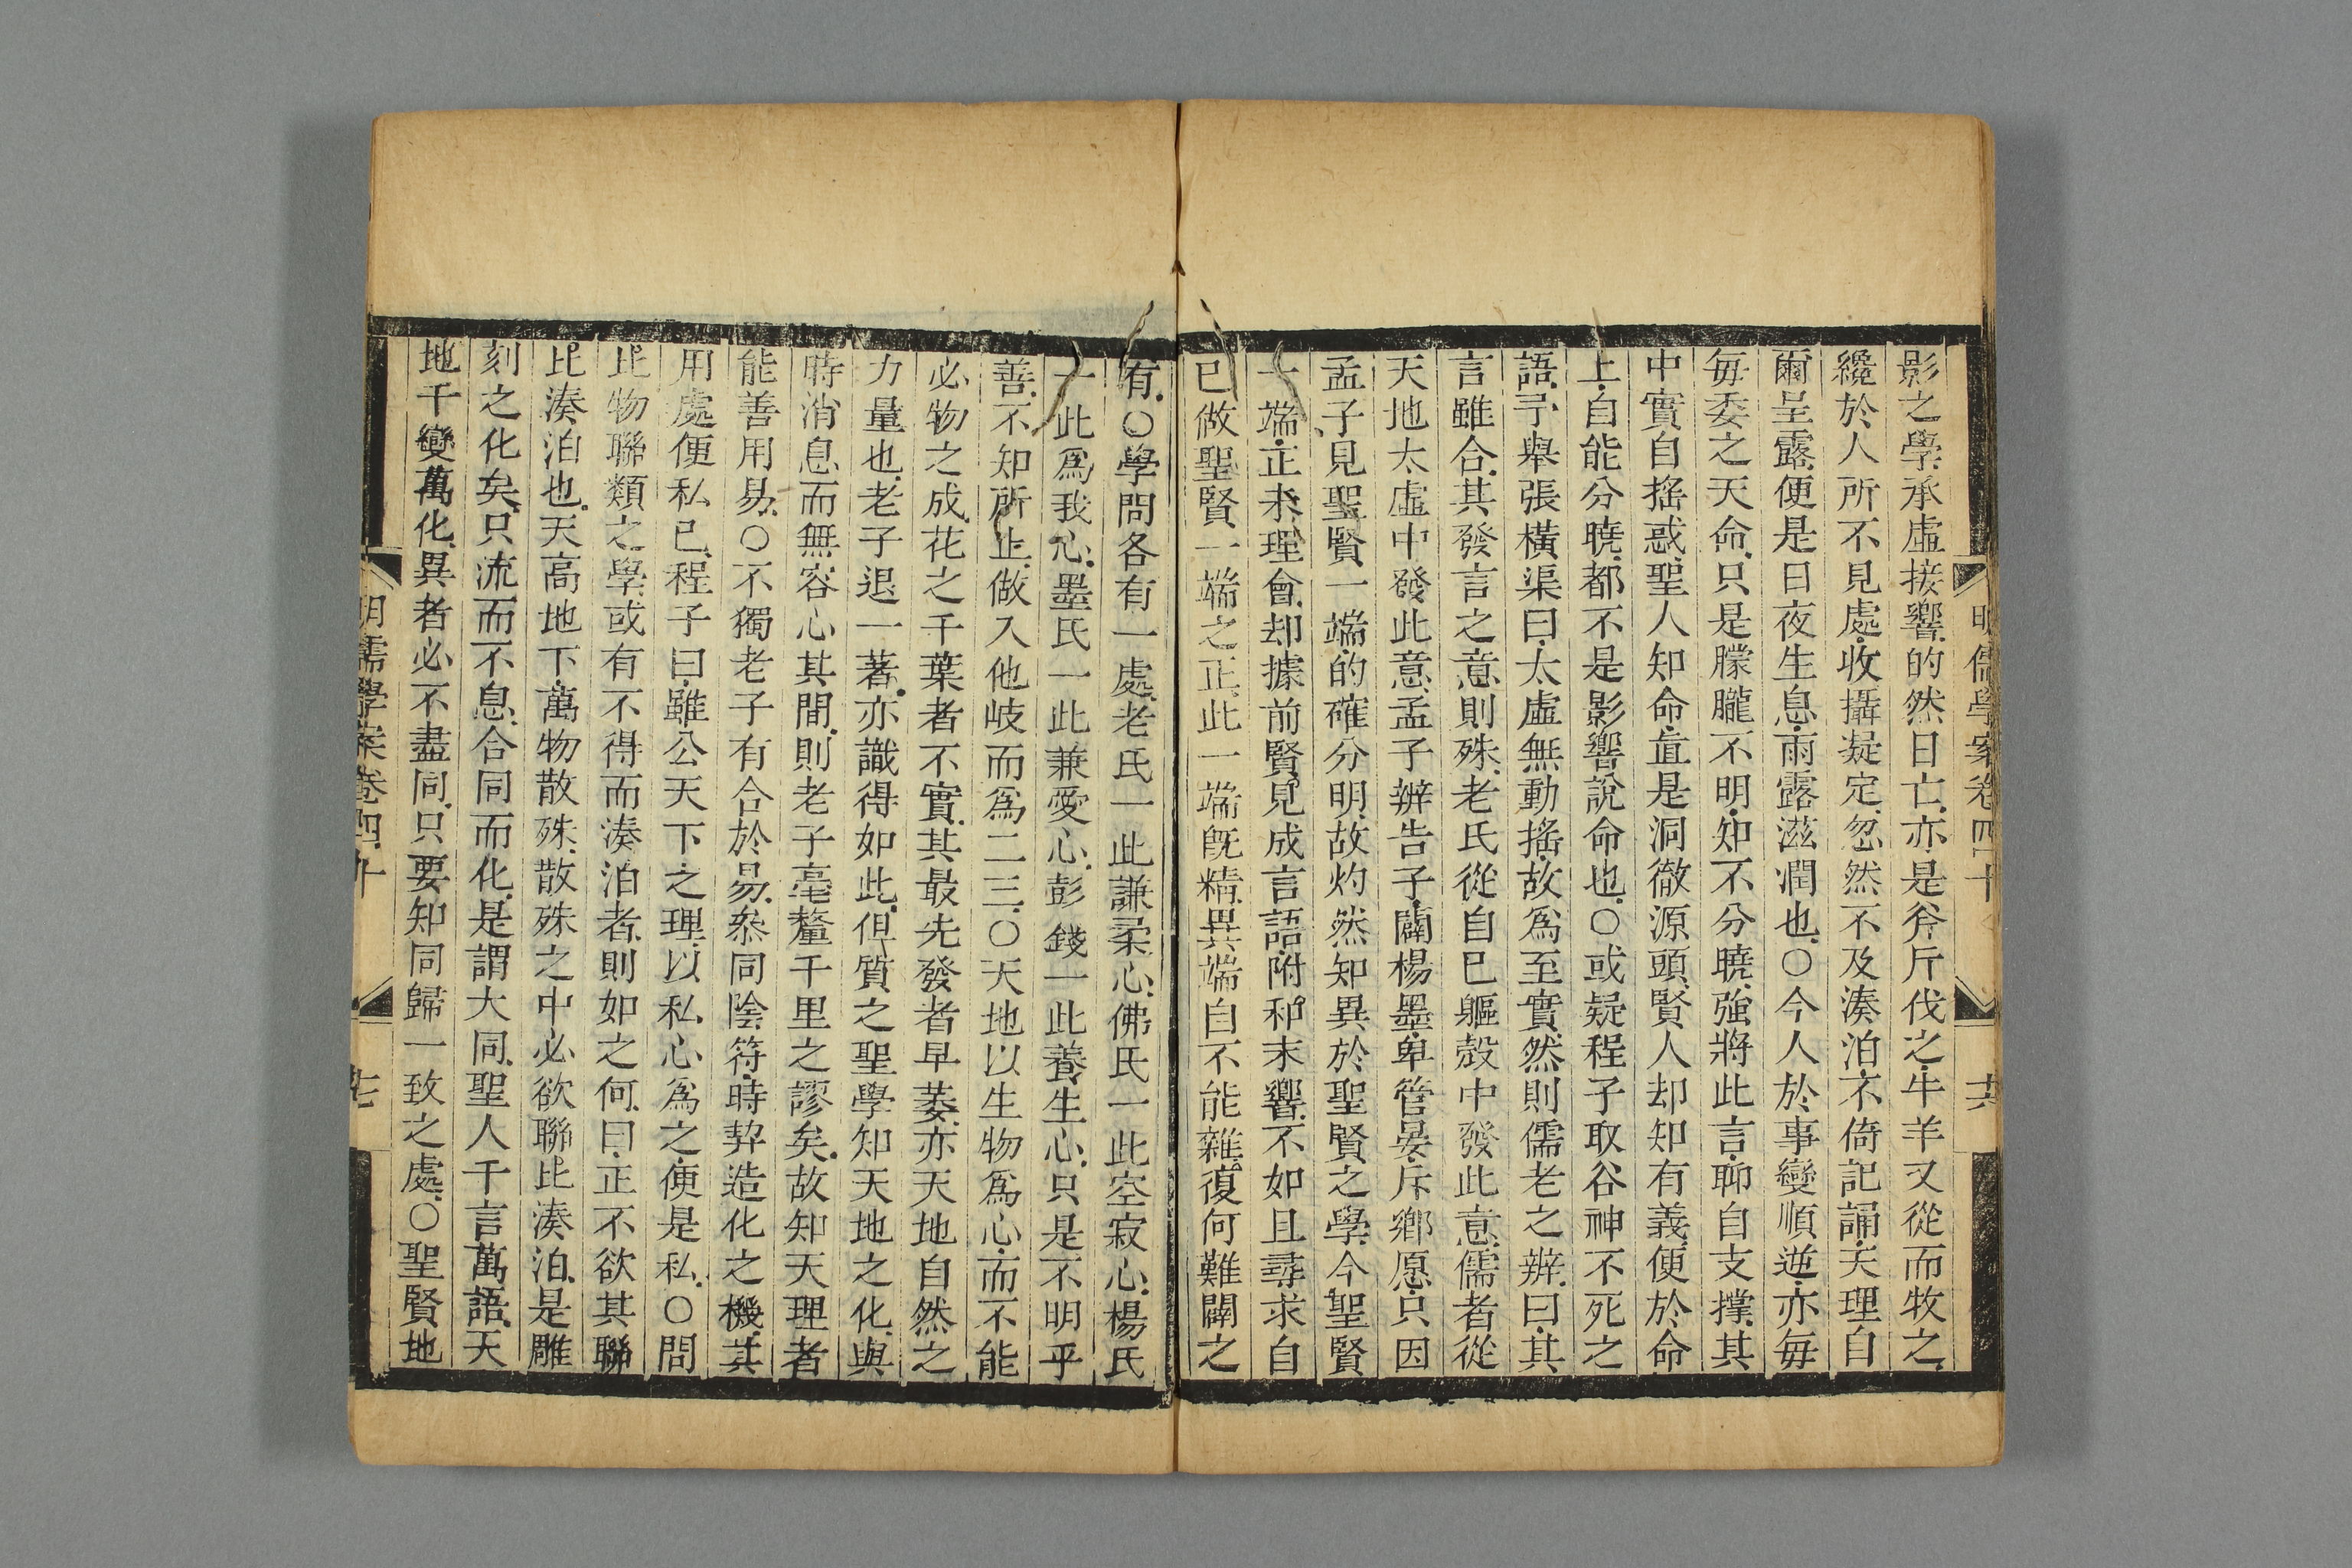 明儒學案卷四十
十六
影之學承虛接響的然日亡亦是斧斤伐之牛羊又從而牧之
纔於人所不見處收攝凝定忽然不及湊泊不倚記誦天理自
爾呈露便是日夜生息雨露滋潤也○今人於事變順逆亦毎
毎委之天命只是朦朧不明知不分曉強將此言聊自支撐其
中實自搖惑聖人知命直是洞徹源頭賢人却知有義便於命
上自能分曉都不是影響說命也○或疑程子取谷神不死之
語予舉張橫渠曰太虛無動搖故爲至實然則儒老之辨曰其
言雖合其發言之意則殊老氏從自己軀殼中發此意儒者從
天地太虛中發此意孟子辨告子闢楊墨卑管晏斥鄉愿只因
孟子見聖賢一端的確分明故灼然知異於聖賢之學今聖賢
一端正未理會却據前賢見成言語附和末響不如且尋求自
已做聖賢一端之正此一端旣精異端自不能雜復何難闢之
有○學問各有一處老氏一此謙柔心佛氏一此空寂心楊氏
一此爲我心墨氏一此兼愛心彭錢一此養生心只是不明乎
善不知所止做入他岐而爲二三○天地以生物爲心而不能
必物之成花之千葉者不實其最先發者早萎亦天地自然之
力量也老子退一著亦識得如此但質之聖學知天地之化與
時消息而無容心其間則老子毫釐千里之謬矣故知天理者
能善用易○不獨老子有合於易叅同陰符時契造化之機其
用處便私已程子曰雖公天下之理以私心爲之便是私○問
比物聯類之學或有不得而湊泊者則如之何曰正不欲其聯
比湊泊也天高地下萬物散殊散殊之中必欲聯比湊泊是雕
刻之化矣只流而不息合同而化是謂大同聖人千言萬語天
地千變萬化異者必不盡同只要知同歸一致之處○聖賢地
明儒學案卷四十
七